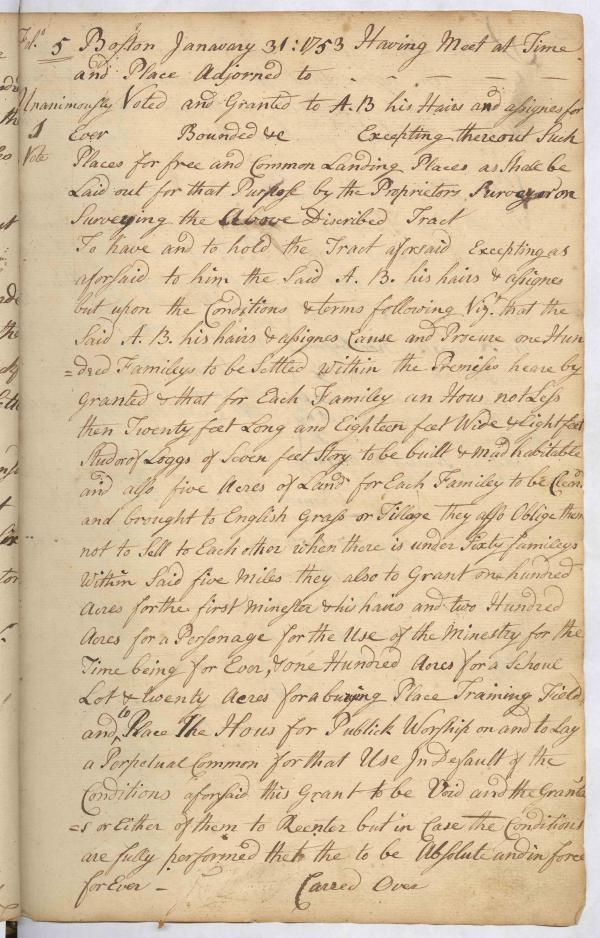 Fol.o 5 Boston Janavary 31: 1753 Having Meet at Time
and Place Adjorned to
Unanimously Voted and Granted to A. B his Hairs and assignes for
1 Ever Bounded &c Excepting thereout Such
Vote Places for free and Common Landing Places as Shall be
Laid out for that Purpose by the Proprietors Surveyor on
Surveying the Above Discribed Tract
To have and to hold the Tract aforsaid Excepting as
aforsaid to him the Said A. B. his hairs & assignes
but upon the Conditions & terms following Viz.t that the
Said A. B. his hairs & assignes Cause and Procure one Hun
=dred Famileys to be Settled within the Premises heare by
Granted & that for Each Familey an Hous not Less
then Twenty feet Long and Eighteen feet Wide & Eight feet
Stud or of Loggs of Seven feet Story to be built & Mad habitable
and also five Acres of Land for Each Familey to be Cleard
and brought to English Grass or Tillage they also Oblige them
not to Sell to Each other when there is under Sixty famileys
Within Said five Miles they also to Grant one hundred
Acres for the first Minester & his hairs and two Hundred
Acres for a Personage for the Use of the Minestry for the
Time being for Ever, & one Hundred Acres for a Schoul
Lot & twenty Acres for a burying Place Training Field
and to Place The Hous for Publick Worship on and to Lay
a Perpetual Common for that Use In Default of the
Conditions aforsaid this Grant to be Void and the Grante
=s or Either of them to Reenter but in Case the Conditions
are fully performed the to be Absolute and in force
for Ever – Carred Over